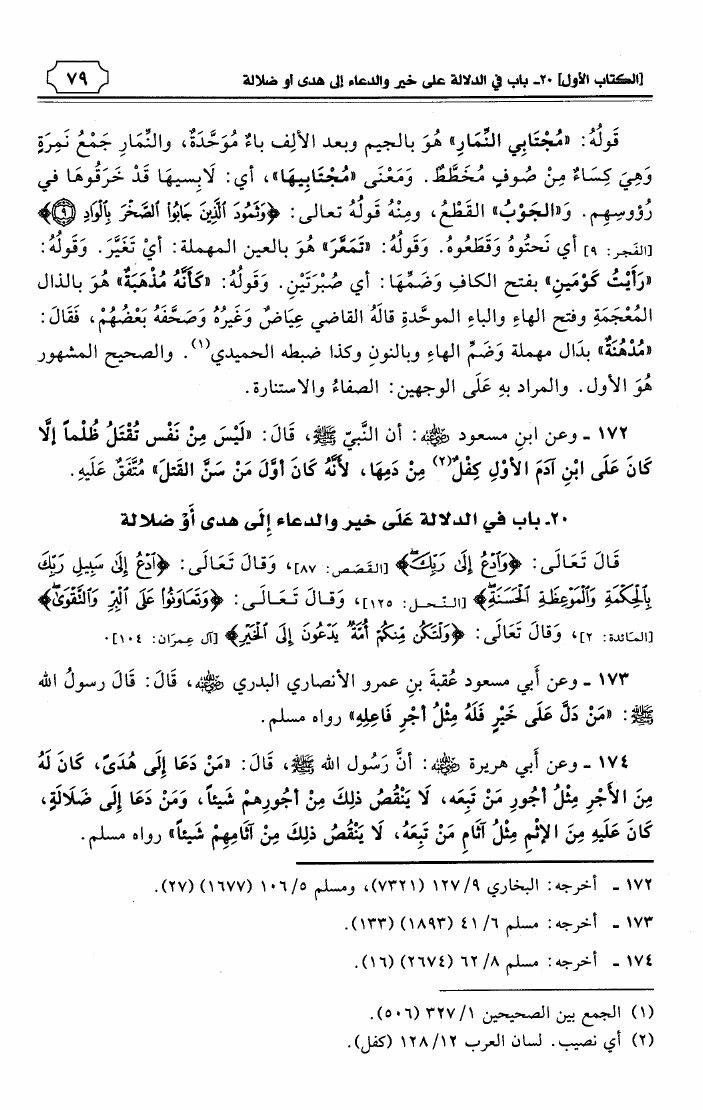 [الكتاب الأول] ٢٠ـ باب في الدلالة على خير والدعاء إلى هدى أو ضلالة
٧٩
قَولُهُ: «مُجْتَابِي النِّمَارِ» هُوَ بالجيم وبعد الألِف باءٌ مُوَحَّدَةٌ، والنِّمَارِ جَمْعُ نَمِرَةٍ
وَهِيَ كِسَاءٌ مِنْ صُوفٍ مُخَطَّطٌ. وَمَعْنَى «مُجْتَابِيهَا»، أي: لَابِسيهَا قَدْ خَرَقُوهَا في
رُؤوسِهِم. وَ«الجَوْبُ» القَطْعُ، ومِنْهُ قَولُهُ تعالى: ﴿وَثَمُودَ ٱلَّذِينَ جَابُوا۟ ٱلصَّخْرَ بِٱلْوَادِ ۝٩﴾
[الفَجر: ٩] أي نَحتُوهُ وَقَطَعُوهُ. وَقَولُهُ: «تَمَعَّرَ» هُوَ بالعين المهملة: أيْ تَغَيَّرَ. وَقَولُهُ:
«رَأَيْتُ كَوْمَينِ» بفتح الكافِ وَضَمِّهَا: أي صُبْرَتَيْنِ. وَقَولُهُ: «كَأَنَّهُ مُذْهَبَةٌ» هُوَ بالذال
المُعْجَمَةِ وفتح الهاءِ والباءِ الموحَّدةِ قالَهُ القاضي عِيَاضٌ وَغَيرُهُ وَصَحَّفَهُ بَعْضُهُمْ، فَقَالَ:
«مُدْهُنَةٌ» بدَال مهملة وَضَمِّ الهاءِ وبالنونِ وكذا ضبطه الحميدي(١). والصحيح المشهور
هُوَ الأول. والمراد بهِ عَلَى الوجهين: الصفاءُ والاستنارة.
١٧٢ ـ وعن ابنِ مسعود رضي الله عنه: أن النَّبيّ ﷺ، قَالَ: «لَيْسَ مِنْ نَفْس تُقْتَلُ ظُلْماً إلَّا
كَانَ عَلَى ابْنِ آدَمَ الأوْلِ كِفْلٌ(٢) مِنْ دَمِهَا، لأنَّهُ كَانَ أوَّلَ مَنْ سَنَّ القَتلَ» مُتَّفَقٌ عَلَيهِ.
٢٠ـ باب في الدلالة عَلَى خير والدعاء إِلَى هدى أَوْ ضلالة
قَالَ تَعَالَى: ﴿وَٱدْعُ إِلَىٰ رَبِّكَ﴾ [القَصَص: ٨٧]، وَقَالَ تَعَالَى: ﴿ٱدْعُ إِلَىٰ سَبِيلِ رَبِّكَ
بِٱلْحِكْمَةِ وَٱلْمَوْعِظَةِ ٱلْحَسَنَةِ﴾ [النّحل: ١٢٥]، وَقَالَ تَعَالَى: ﴿وَتَعَاوَنُوا۟ عَلَى ٱلْبِرِّ وَٱلتَّقْوَىٰ﴾
[المَائدة: ٢]، وَقَالَ تَعَالَى: ﴿وَلْتَكُن مِّنكُمْ أُمَّةٌ يَدْعُونَ إِلَى ٱلْخَيْرِ﴾ [آل عِمرَان: ١٠٤].
١٧٣ ـ وعن أَبي مسعود عُقبةَ بنِ عمرو الأنصاري البدري رضي الله عنه، قَالَ: قَالَ رسولُ الله
ﷺ: «مَنْ دَلَّ عَلَى خَيْرٍ فَلَهُ مِثْلُ أجْرِ فَاعِلِهِ» رواه مسلم.
١٧٤ ـ وعن أَبي هريرة رضي الله عنه: أنَّ رَسُول الله ﷺ، قَالَ: «مَنْ دَعَا إِلَى هُدَىً، كَانَ لَهُ
مِنَ الأَجْرِ مِثْلُ أجُورِ مَنْ تَبِعَه، لَا يَنْقُصُ ذلِكَ مِنْ أجُورِهمْ شَيئاً، وَمَنْ دَعَا إِلَى ضَلَالَةٍ،
كَانَ عَلَيهِ مِنَ الإثْمِ مِثْلُ آثَامِ مَنْ تَبِعَهُ، لَا يَنْقُصُ ذلِكَ مِنْ آثَامِهِمْ شَيئاً» رواه مسلم.
١٧٢ ـ أخرجه: البخاري ٩/ ١٢٧ (٧٣٢١)، ومسلم ٥/ ١٠٦ (١٦٧٧) (٢٧).
١٧٣ ـ أخرجه: مسلم ٦/ ٤١ (١٨٩٣) (١٣٣).
١٧٤ ـ أخرجه: مسلم ٨/ ٦٢ (٢٦٧٤) (١٦).
(١) الجمع بين الصحيحين ١/ ٣٢٧ (٥٠٦).
(٢) أي نصيب. لسان العرب ١٢/ ١٢٨ (كفل).